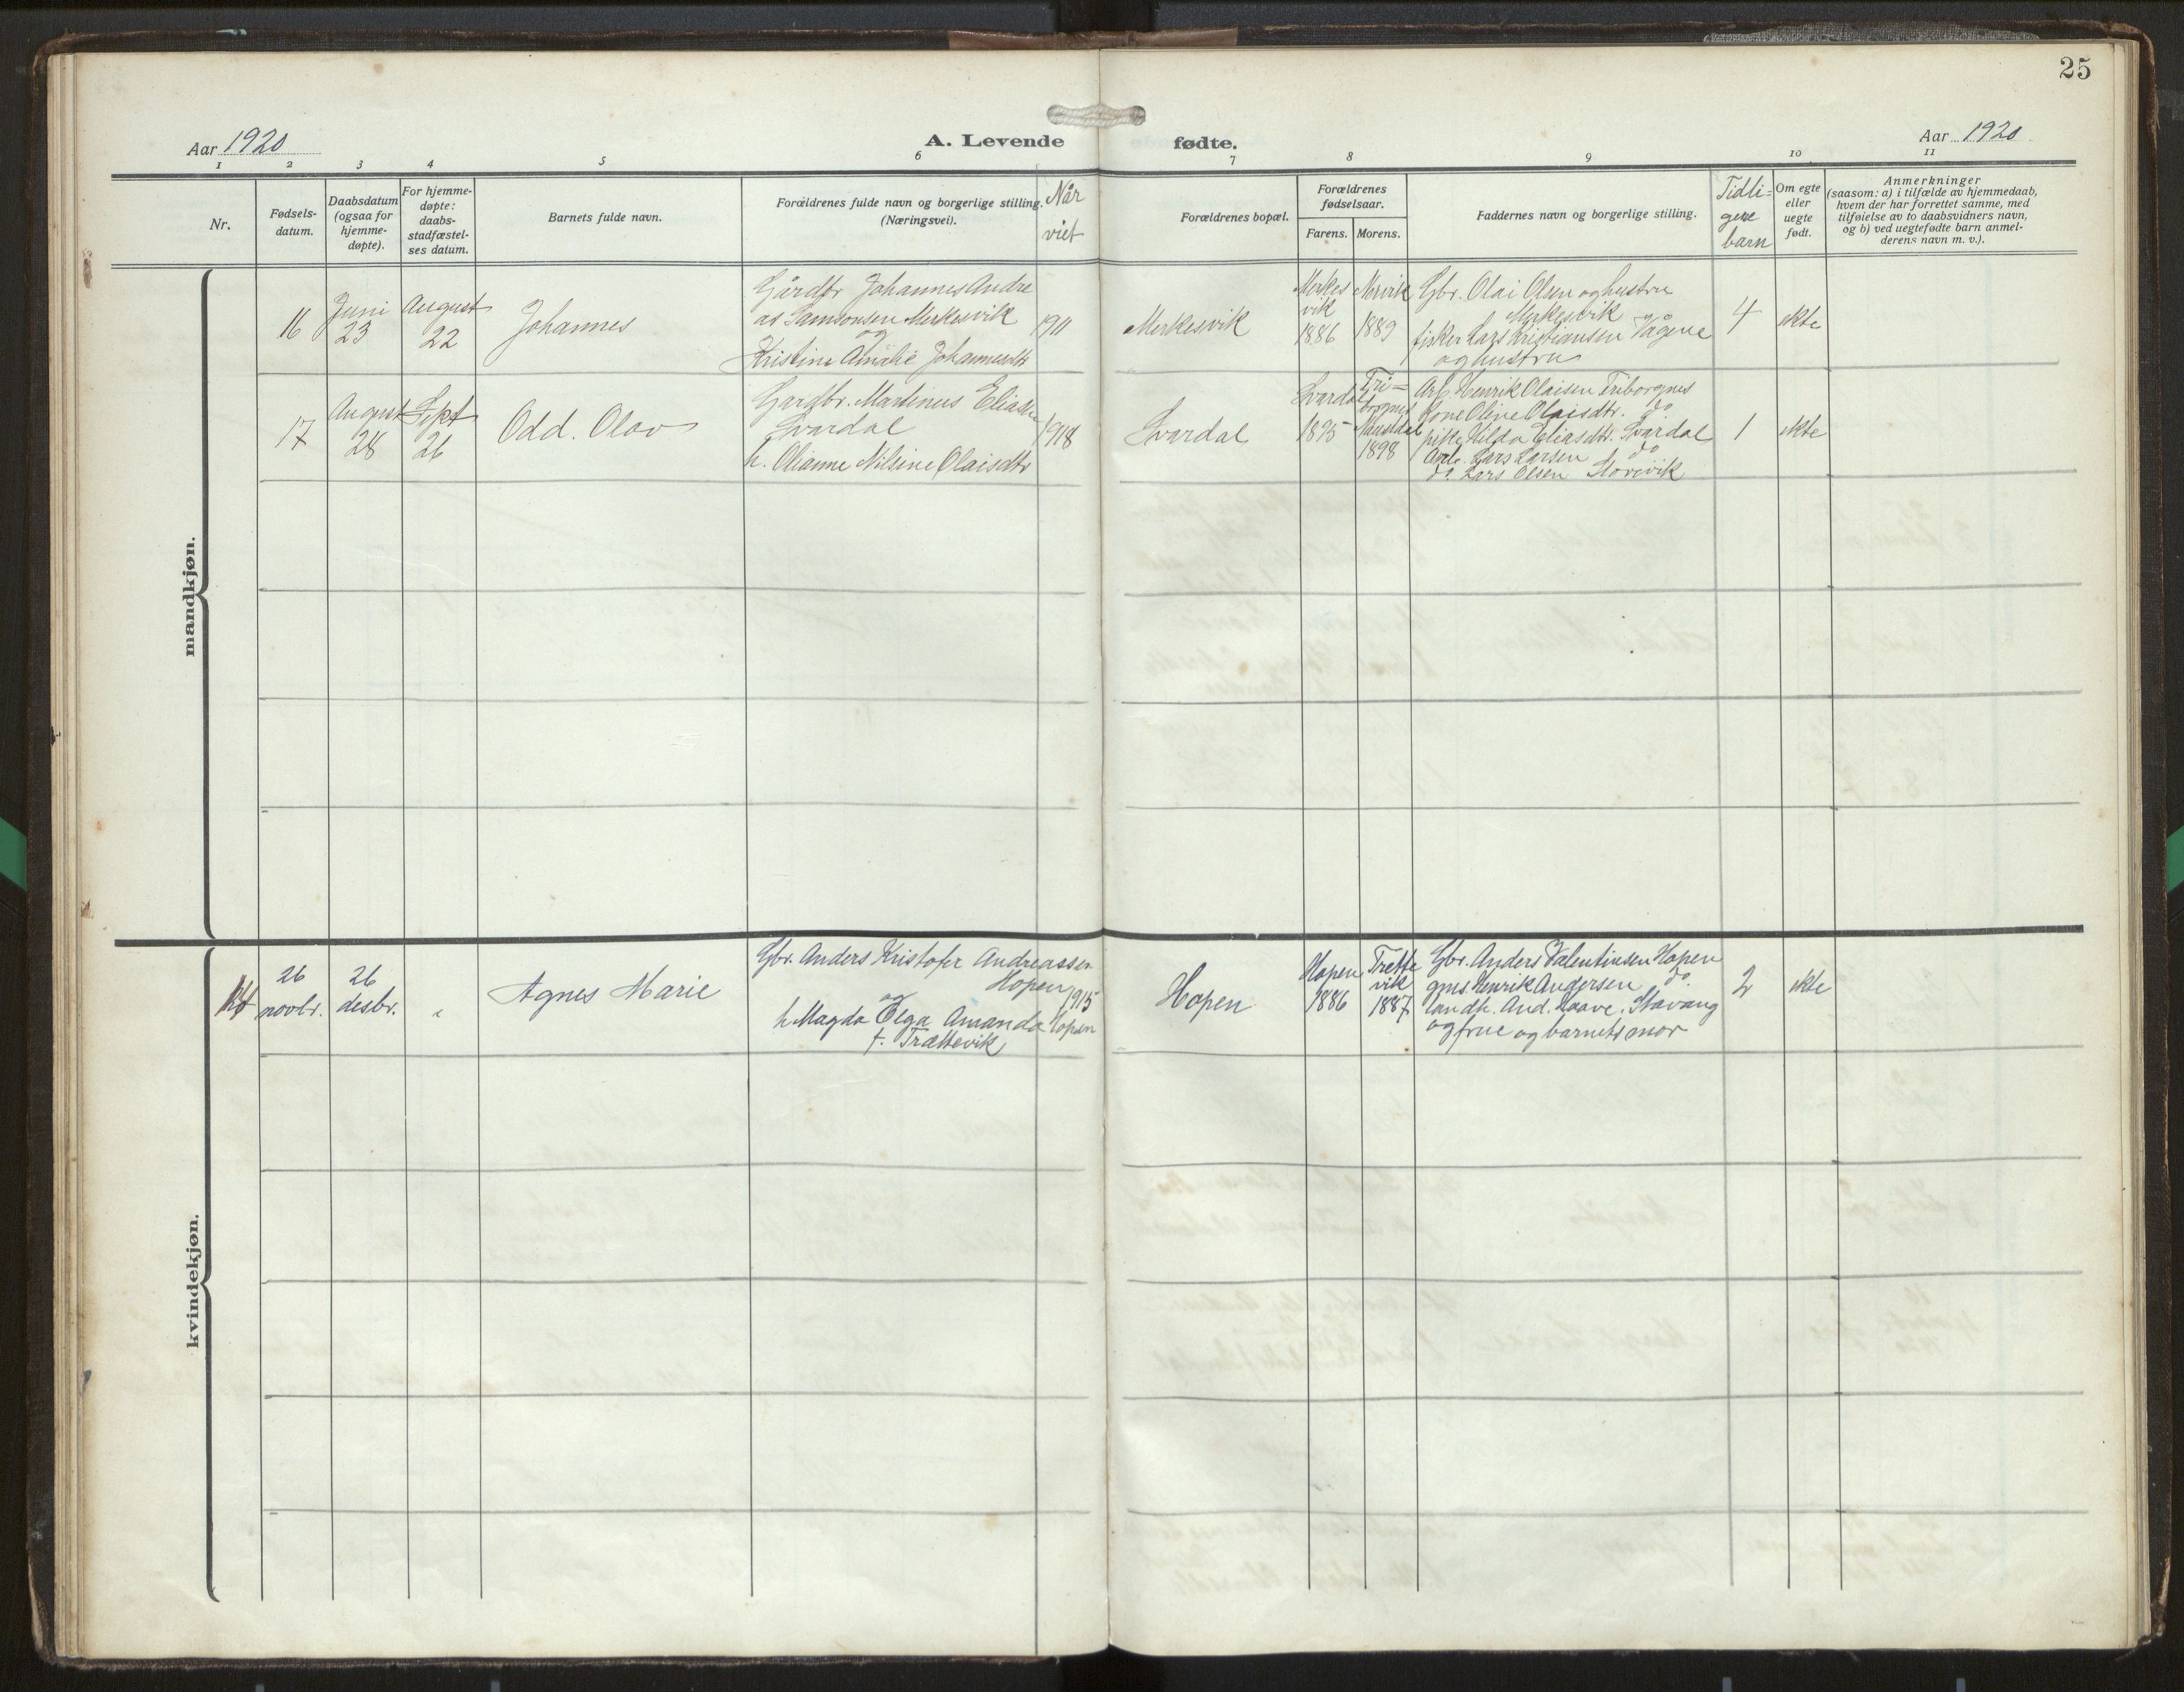 25
Aar 1920
A. Levende fødte.
Aar 1920
1 2 3 4 5 6 7 8 9 10 11
Nr.
Fødsels-
datum.
Daabsdatum
(ogsaa for
hjemme-
døpte).
For hjemme-
døpte:
daabs-
stadfæstel-
ses datum.
Barnets fulde navn.
Forældrenes fulde navn og borgerlige stilling.
(Næringsvei).
Når
viet
Forældrenes bopæl.
Forældrenes
fødselsaar.
Farens. Morens.
Faddernes navn og borgerlige stilling.
Tidli-
gere
barn
Om egte
eller
uegte
født.
Anmerkninger
(saasom: a) i tilfælde av hjemmedaab,
hvem der har forrettet samme, med
tilføielse av to daabsvidners navn,
og b) ved uegtefødte barn anmel-
derens navn m. v.).
mandkjøn.
16
Juni
23
August
22
Johannes
Gårdbr Johannes Andre
as Samsonsen Merkesvik
og
Kristine Amalie Johannesdtr
1911
Merkesvik
Merkes
vik
1886
1889
Gbr. Olai Olsen og hustru
Merkesvik
fisker Lars Kristiansen Vågene
og hustru
4
ekte
17
August
28
Sept
26
Odd. Olav
Gardbr. Martinus Eliasen
Svardal
h. Olianne Nilsine Olaisdtr
1918
Svardal
Svardal
1895
Tri-
borgnes
1898
Arb. Henrik Olaisen Triborgnes
Kone Oline Olaisdtr. do
pike Hilda Eliasdtr. Svardal
Arb. Lars Larsen do
do Lars Olsen Storevik
1
ekte
kvindekjøn.
14
26
novbr.
26
desbr.
"
Agnes Marie
Gbr. Anders Kristofer Andreassen
Hopen
og
h Magda Olga Amanda Hopen
f. Trættevik
1915
Hopen
Hopen
1886
Trette
vik
1887
Gbr. Anders Valentinsen Hopen
gms. Henrik Andersen do.
landh. And. Haave. Stavang
og frue og barnets mor
2
ekte